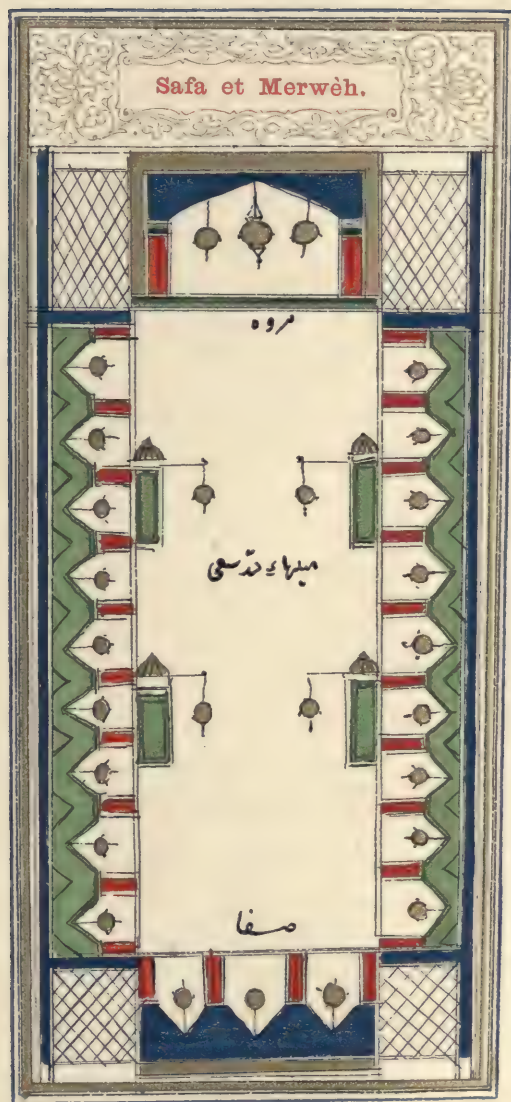 Safa et Merwèh.
مروه
حدّ سعى
صفا